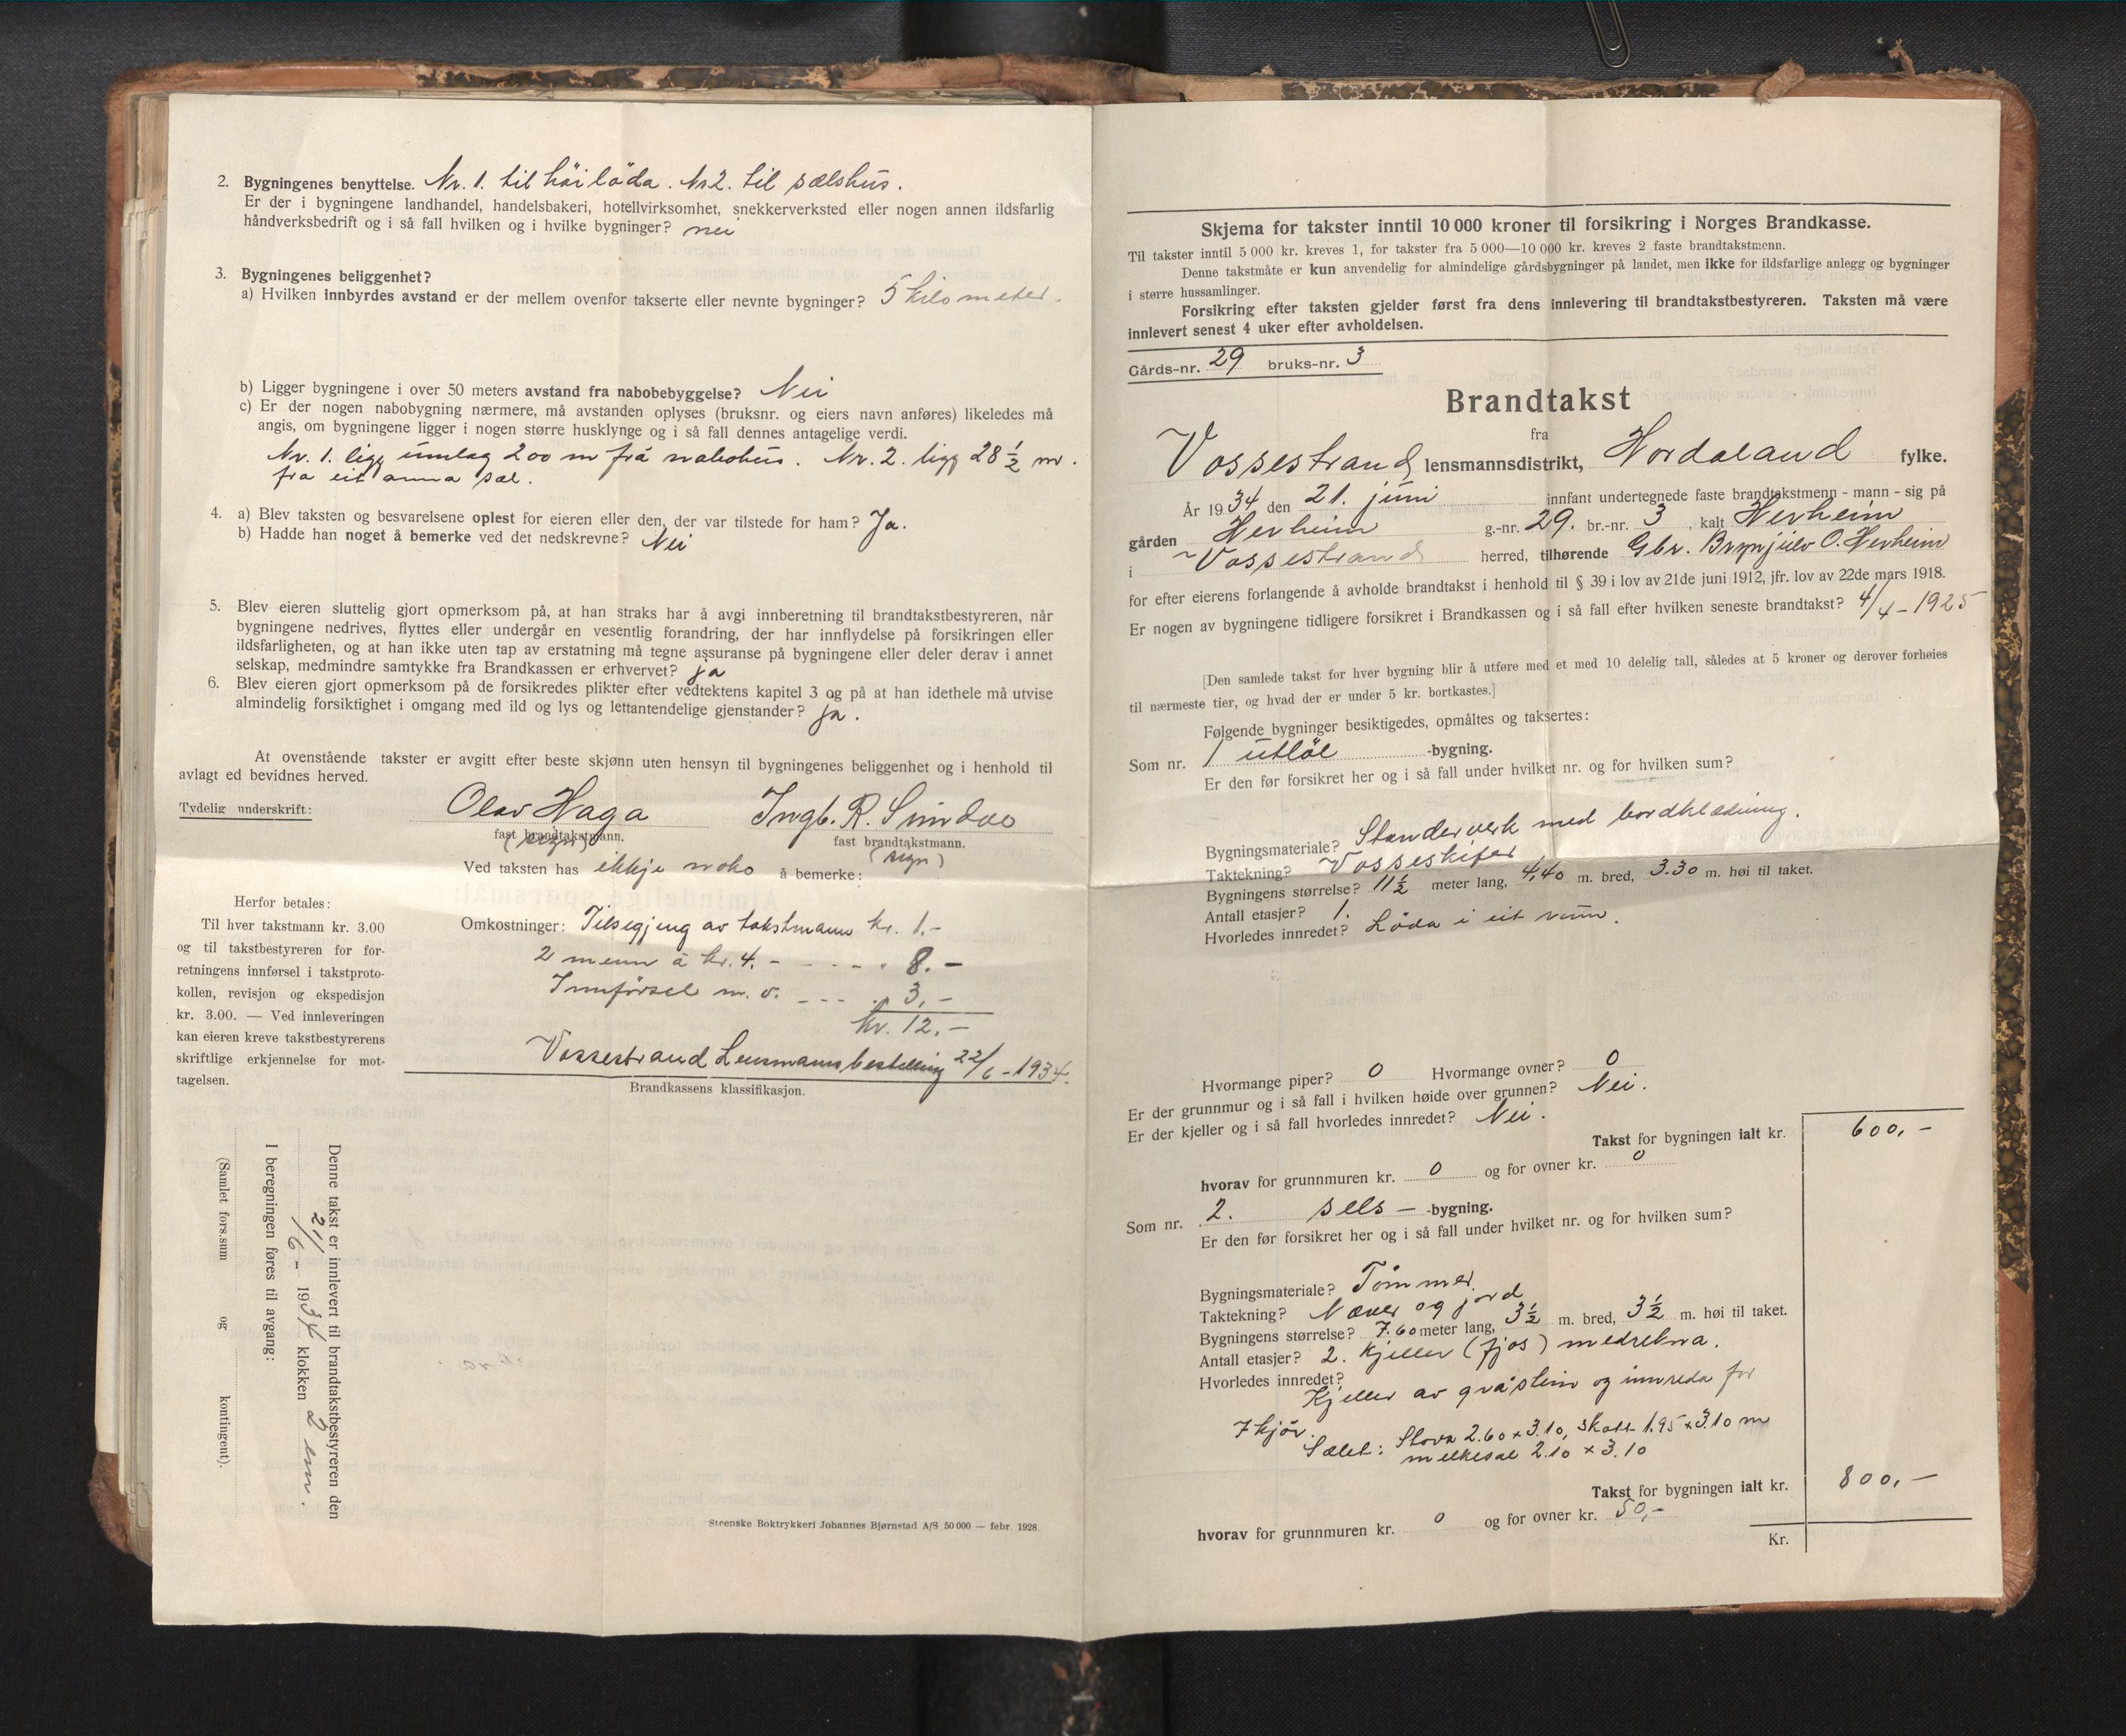 2. Bygningenes benyttelse. Nr. 1. til høiløda. Nr 2. til sælshus.
Er der i bygningene landhandel, handelsbakeri, hotellvirksomhet, snekkerverksted eller nogen annen ildsfarlig
håndverksbedrift og i så fall hvilken og i hvilke bygninger? nei
3. Bygningenes beliggenhet?
a) Hvilken innbyrdes avstand er der mellem ovenfor takserte eller nevnte bygninger? 5 kilometer.
b) Ligger bygningene i over 50 meters avstand fra nabobebyggelse? Nei
c) Er der nogen nabobygning nærmere, må avstanden oplyses (bruksnr. og eiers navn anføres) likeledes må
angis, om bygningene ligger i nogen større husklynge og i så fall dennes antagelige verdi.
Nr. 1. ligg umlag 200 m frå nabohus. Nr. 2. ligg 28 1/2 m.
fra eit anna sæl.
4. a) Blev taksten og besvarelsene oplest for eieren eller den, der var tilstede for ham? Ja.
b) Hadde han noget å bemerke ved det nedskrevne? Nei
5. Blev eieren sluttelig gjort opmerksom på, at han straks har å avgi innberetning til brandtakstbestyreren, når
bygningene nedrives, flyttes eller undergår en vesentlig forandring, der har innflydelse på forsikringen eller
ildsfarligheten, og at han ikke uten tap av erstatning må tegne assuranse på bygningene eller deler derav i annet
selskap, medmindre samtykke fra Brandkassen er erhvervet? ja
6. Blev eieren gjort opmerksom på de forsikredes plikter efter vedtektens kapitel 3 og på at han idethele må utvise
almindelig forsiktighet i omgang med ild og lys og lettantendelige gjenstander? ja.
At ovenstående takster er avgitt efter beste skjønn uten hensyn til bygningenes beliggenhet og i henhold til
avlagt ed bevidnes herved.
Tydelig underskrift: Olav Haga Ingb. R. Sundve
fast brandtakstmann. fast brandtakstmann.
(sign) (sign)
Ved taksten has ikkje noko å bemerke:
Herfor betales:
Til hver takstmann kr. 3.00
og til takstbestyreren for for-
retningens innførsel i takstproto-
kollen, revisjon og ekspedisjon
kr. 3.00. — Ved innleveringen
kan eieren kreve takstbestyrerens
skriftlige erkjennelse for mot-
tagelsen.
Omkostninger: Tilsegjing av takstmann kr. 1.-
2 menn à kr. 4. - - - - - 8.-
Innførsel m. v. - - - . 3.-
kr. 12.-
Vossestrand Lensmannsbestelling 22/6 - 1934.
Brandkassens klassifikasjon.
Denne takst er innlevert til brandtakstbestyreren den
21/6 - 1934 klokken 2 em.
I beregningen føres til avgang:
(Samlet fors.sum og kontingent).
Steenske Boktrykkeri Johannes Bjørnstad A/S 50 000 — febr. 1928.
Skjema for takster inntil 10 000 kroner til forsikring i Norges Brandkasse.
Til takster inntil 5 000 kr. kreves 1, for takster fra 5 000—10 000 kr. kreves 2 faste brandtakstmenn.
Denne takstmåte er kun anvendelig for almindelige gårdsbygninger på landet, men ikke for ildsfarlige anlegg og bygninger
i større hussamlinger.
Forsikring efter taksten gjelder først fra dens innlevering til brandtakstbestyreren. Taksten må være
innlevert senest 4 uker efter avholdelsen.
Gårds-nr. 29 bruks-nr. 3
Brandtakst
fra
Vossestrand lensmannsdistrikt, Hordaland fylke.
År 1934 den 21. juni innfant undertegnede faste brandtakstmenn - mann - sig på
gården Herheim g.-nr. 29. br.-nr. 3, kalt Herheim
i Vossestrand herred, tilhørende Gbr. Brynjulv O. Herheim
for efter eierens forlangende å avholde brandtakst i henhold til § 39 i lov av 21de juni 1912, jfr. lov av 22de mars 1918.
Er nogen av bygningene tidligere forsikret i Brandkassen og i så fall efter hvilken seneste brandtakst? 4/4 - 1925
[Den samlede takst for hver bygning blir å utføre med et med 10 delelig tall, således at 5 kroner og derover forhøies
til nærmeste tier, og hvad der er under 5 kr. bortkastes.]
Følgende bygninger besiktigedes, opmåltes og taksertes:
Som nr. 1 utløe -bygning.
Er den før forsikret her og i så fall under hvilket nr. og for hvilken sum?
Bygningsmateriale? Standerverk med bordklædning.
Taktekning? Vosseskifer
Bygningens størrelse? 11 1/2 meter lang, 4,40 m. bred, 3.30 m. høi til taket.
Antall etasjer? 1.
Hvorledes innredet? Löda i eit rum.
Hvormange piper? 0 Hvormange ovner? 0
Er der grunnmur og i så fall i hvilken høide over grunnen? Nei.
Er der kjeller og i så fall hvorledes innredet? Nei.
Takst for bygningen ialt kr. 600,-
hvorav for grunnmuren kr. 0 og for ovner kr. 0
Som nr. 2. sels — -bygning.
Er den før forsikret her og i så fall under hvilket nr. og for hvilken sum?
Bygningsmateriale? Tømmer
Taktekning? Næver og jord
Bygningens størrelse? 7.60 meter lang, 3 1/2 m. bred, 3 1/2 m. høi til taket.
Antall etasjer? 2. Kjeller (fjos) medrekna.
Hvorledes innredet?
Kjeller av gråstein og innreda for
7 kjör.
Sælet: Stova 2.60 x 3.10, skott 1.95 x 3.10 m
melkesæl 2.10 x 3.10
Takst for bygningen ialt kr. 800,-
hvorav for grunnmuren kr. 0 og for ovner kr. 50,-
Kr.